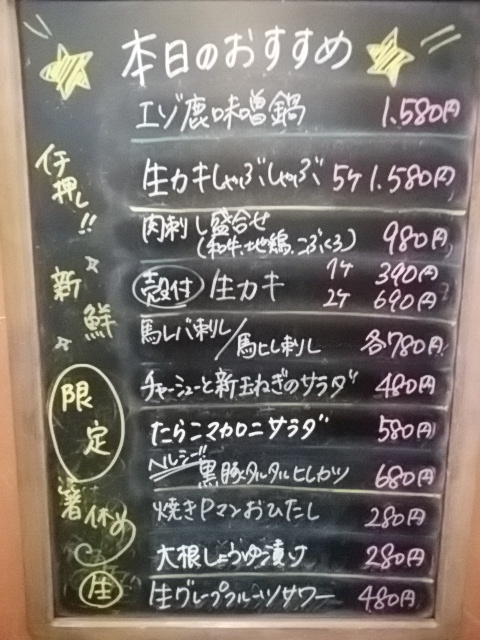 本日のおすすめ
エゾ鹿味噌鍋 1.580円
生カキしゃぶしゃぶ 5ケ 1.580円
肉刺し盛合せ 980円
(和牛.地鶏.こぶくろ)
殻付 生カキ 1ケ 390円
2ケ 690円
馬レバ刺し/馬ヒレ刺し 各780円
チャーシューと新玉ねぎのサラダ 480円
たらこマカロニサラダ 580円
ヘルシー!!
黒豚タルタルヒレカツ 680円
焼きPマンおひたし 280円
大根しょうゆ漬け 280円
生グレープフルーツサワー 480円
イチ押し!!
新鮮
限定
箸休め
生